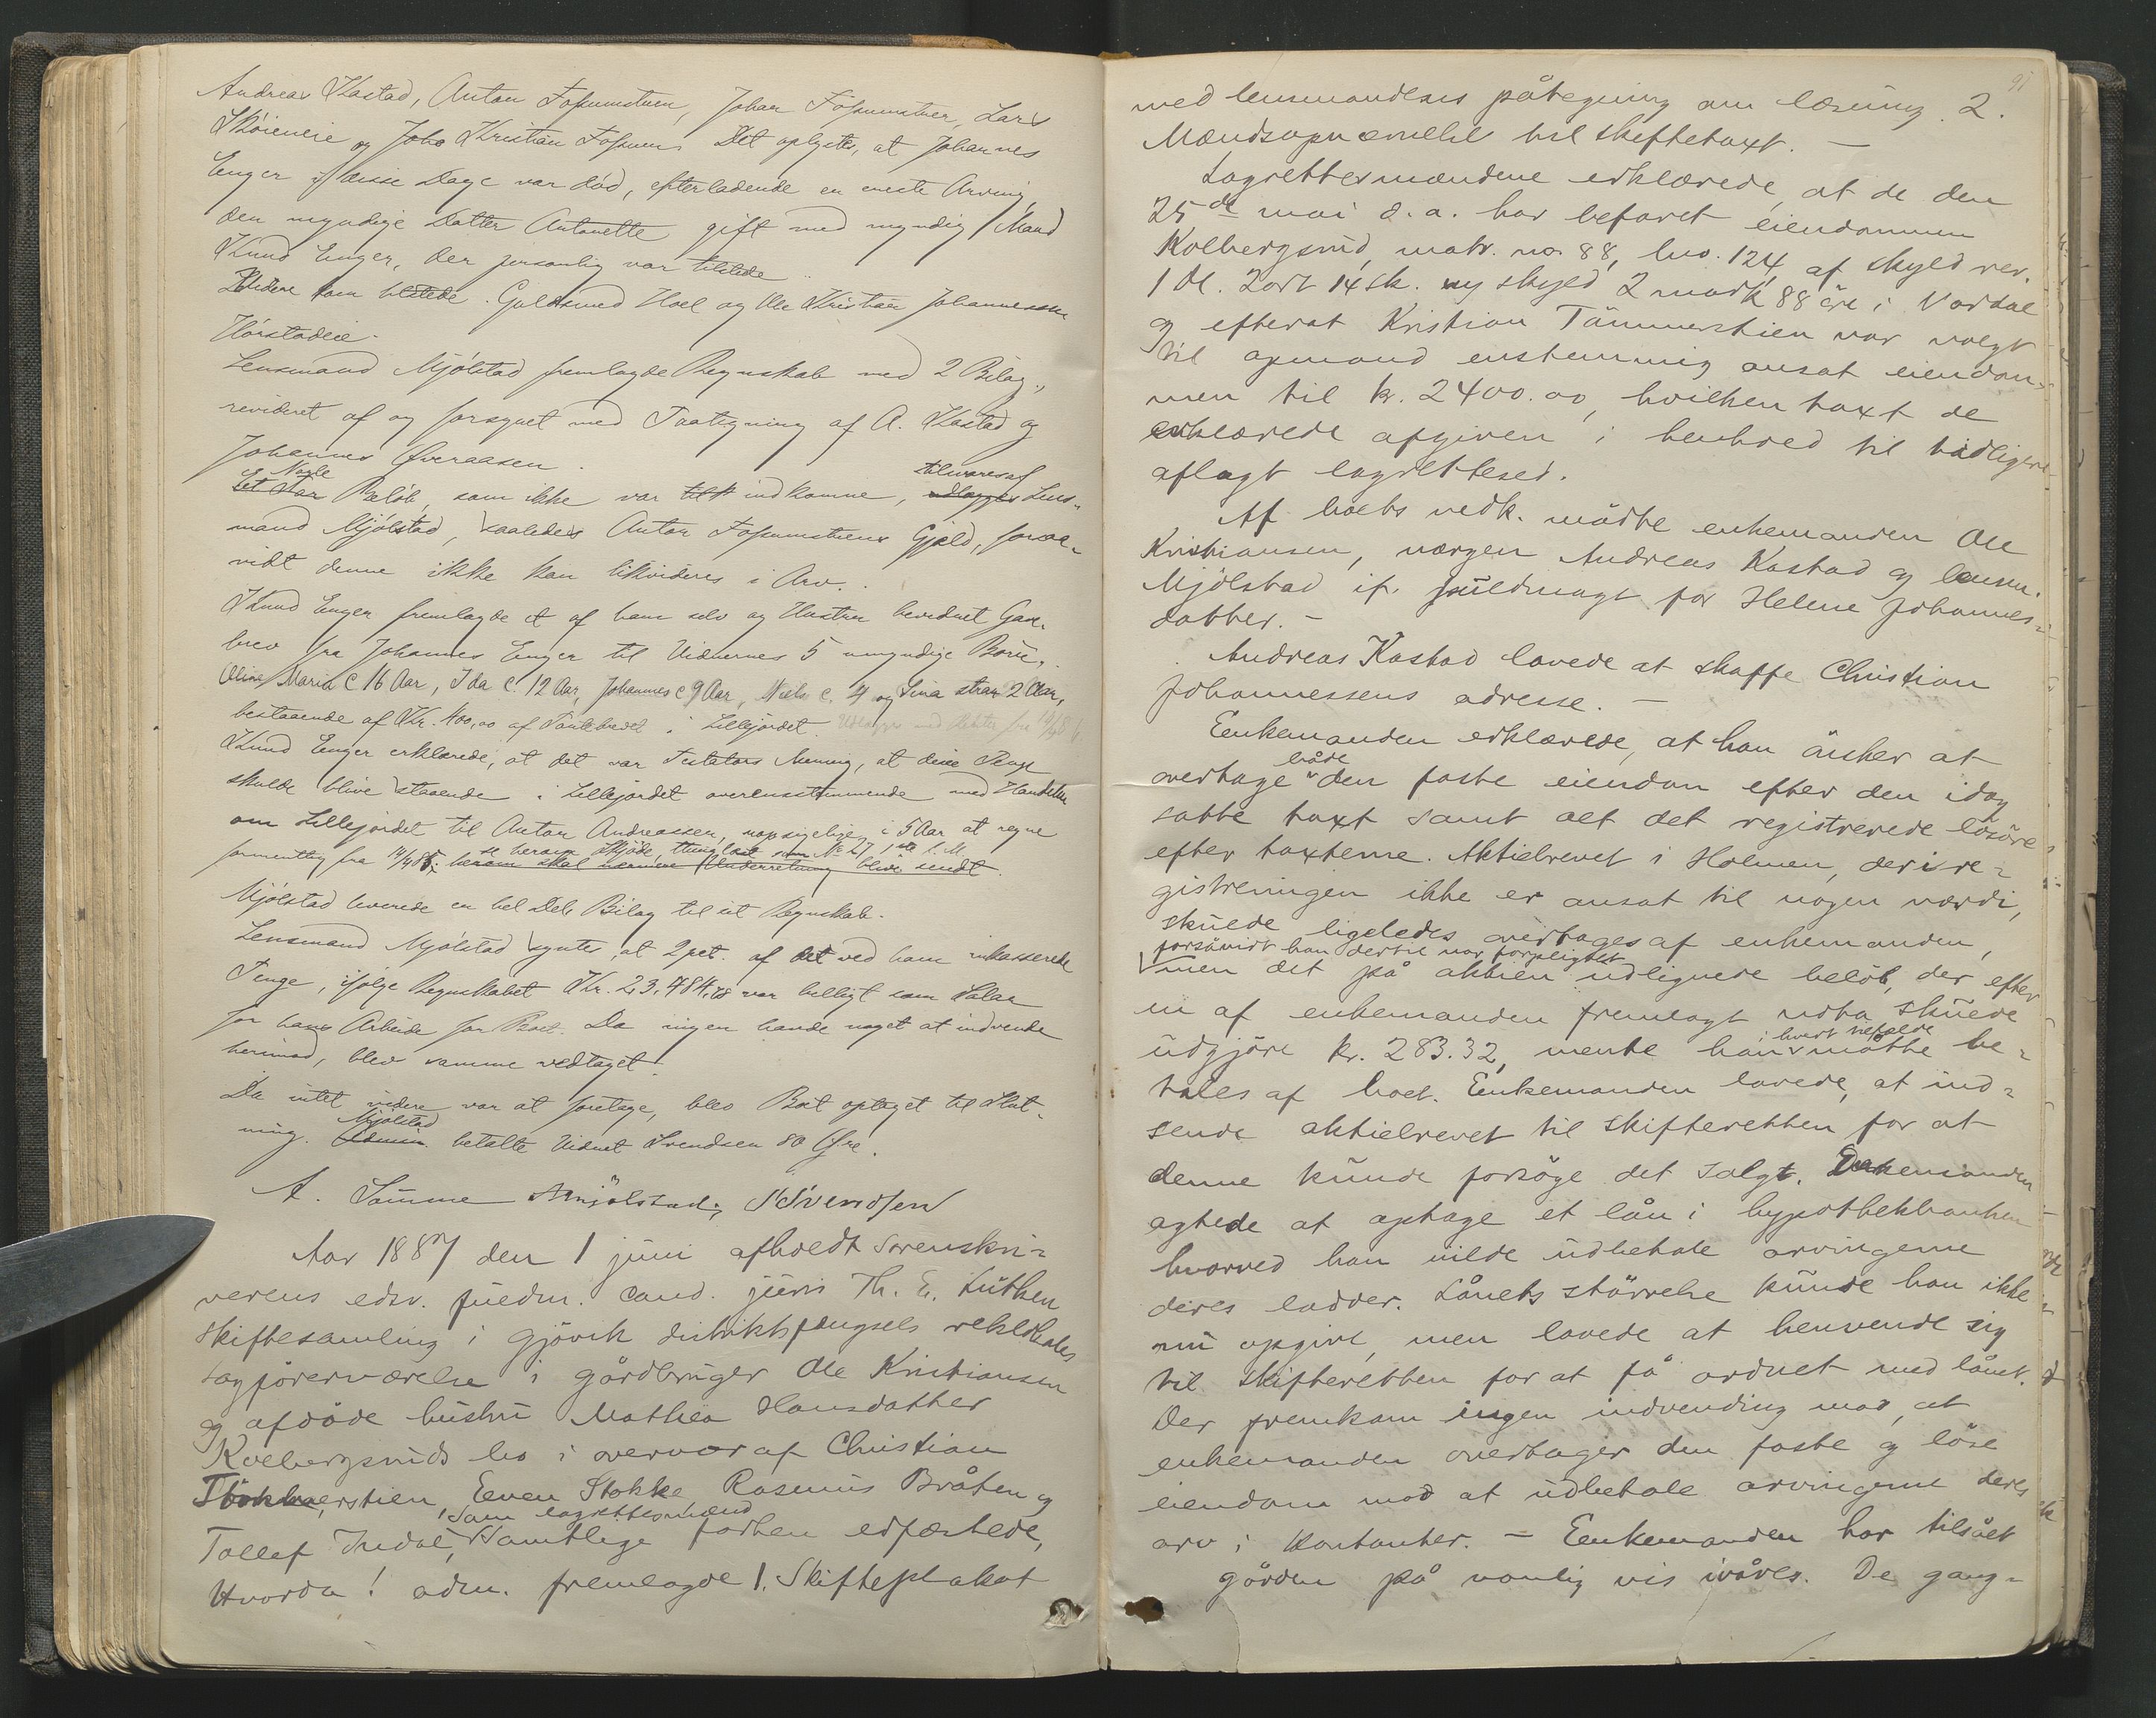 Andreas Kastad, Anton Fossumstuen, Johan Fossumstuen, Lars
Skóieneie og Johs Kristian Fossum. Det oplystes, at Johannes
Enger i disse Dage var död, efterladende en eneste Arving,
den myndige Datter Antonette gift med myndig Mand
Knud Enger, der personlig var tilstede.
Videre som tilstede. Guldsmed Hoel og Ole Kristian Johannessen
Hörstadeie.
Lensmand Mjölstad fremlagde Regnskab med 2 Bilag,
revideret af og forsynet med Paategning af A. Kastad og
Johannes Øveraasen.
Nogle
Et Par Belöb, som ikke var indkomne, tilsvares af Lens-
mand Mjölstad, saaledes Anton Fossumstuens Gjæld, forsaa-
vidt denne ikke kan likvideres i Arv.
Knud Enger fremlagde et af ham selv og Hustru bevidnet Gave-
brev fra Johannes Enger til Vidnernes 5 umyndige Börn,
Oline Maria c 16 Aar, Ida c. 12 Aar, Johannes c 9 Aar, Niels c. 4 og Lina strax 2 Aar,
bestaaende af Kr. 400,00 af Pantebrevet i Lillejordet.
Knud Enger erklærede, at det var Testators Mening, at disse Penge
skulde blive staaende i Lillejordet overensstemmende med Handelen
om Lillejordet til Anton Andreassen, uopsigelige i 5 Aar at regne
formentlig fra 14/4 85; herom skal nærmere Underretning blive sendt.
Mjölstad leverede en hel Del Bilag til sit Regnskab.
Lensmand Mjölstad syntes, at 2 pct. af det ved ham inkasserede
Penge, ifølge Regnskabet Kr. 23,484, var billigt som Salær
for hans Arbeide for Boet. Da ingen havde noget at indvende
herimod, blev samme vedtaget.
Da intet videre var at foretage, blev Boet optaget til Slut-
Mjölstad
ning. Admin. betalte Vidnet Svendsen 80 Øre.
A. Sömme AMjölstad, S Svendsen
Aar 1887 den 1 juni afholdt sorenskri-
verens edsv. fuldm. cand. juris Th. E. Lüthen
skiftesamling i Gjövik distriktsfængsels retslokale
sagförerværelse i gårdbruger Ole Kristiansen
og afdöde hustru Mathea Hansdatter
Kolbergsruds bo i overvær af Christian
Tömmerstien, Even Stokke Rasmus Bråten og
som lagrettesmænd
Tollef Indal, samtlige forhen edfæstede,
Hvorda! adm. fremlagde 1. Skifteplakat
91
med lensmandens påtegning om læsning. 2.
Mændsopnævnelse til skiftetaxt. —
Lagrettesmændene erklærede, at de den
25de mai d. a. har befaret eiendommen
Kolbergsrud, matr. no. 88, lno. 124, af skyld rev.
1 dl. 2 ort 14 sk. ny skyld 2 mark 88 öre i Vardal
og efterat Kristian Tömmerstien var valgt
til opmand enstemmig ansat eiendom-
men til kr. 2400.00, hvilken taxt de
erklærede afgiven i henhold til tidligere
aflagt lagrettesed.
Af boets vedk. mödte enkemanden Ole
Kristiansen, værgen Andreas Kastad og lensm.
Mjölstad if. fuldmagt for Helene Johannes-
datter. —
Andreas Kastad lovede at skaffe Christian
Johannessens adresse. —
Enkemanden erklærede, at han önsker at
både
overtage den faste eiendom efter den idag
satte taxt samt alt det registrerede lösöre
efter taxterne. Aktiebrevet i Holmen, der i re-
gistreringen ikke er ansat til nogen værdi,
skulde ligeledes overtages af enkemanden,
forsåvidt han dertil var forpligtet
men det på aktien udlignede belöb, der efter
en af enkemanden fremlagt nota skulde
i hvert tilfælde
udgjöre kr. 283.32, mente han måtte be-
tales af boet. Enkemanden lovede, at ind-
sende aktiebrevet til skifteretten for at
denne kunde forsöge det solgt. Enkemanden
agtede at optage et lån i hypothekbanken
hvorved han vilde udbetale arvingerne
deres lodder. Lånets störrelse kunde han ikke
nu opgive, men lovede at henvende sig
til skifteretten for at få ordnet med lånet.
Der fremkom ingen indvending mod, at
enkemanden overtager den faste og löse
eiendom mod at udbetale arvingerne deres
arv i kontanter. — Enkemanden har tilsået
gården på vanlig vis ivåres. De gang-